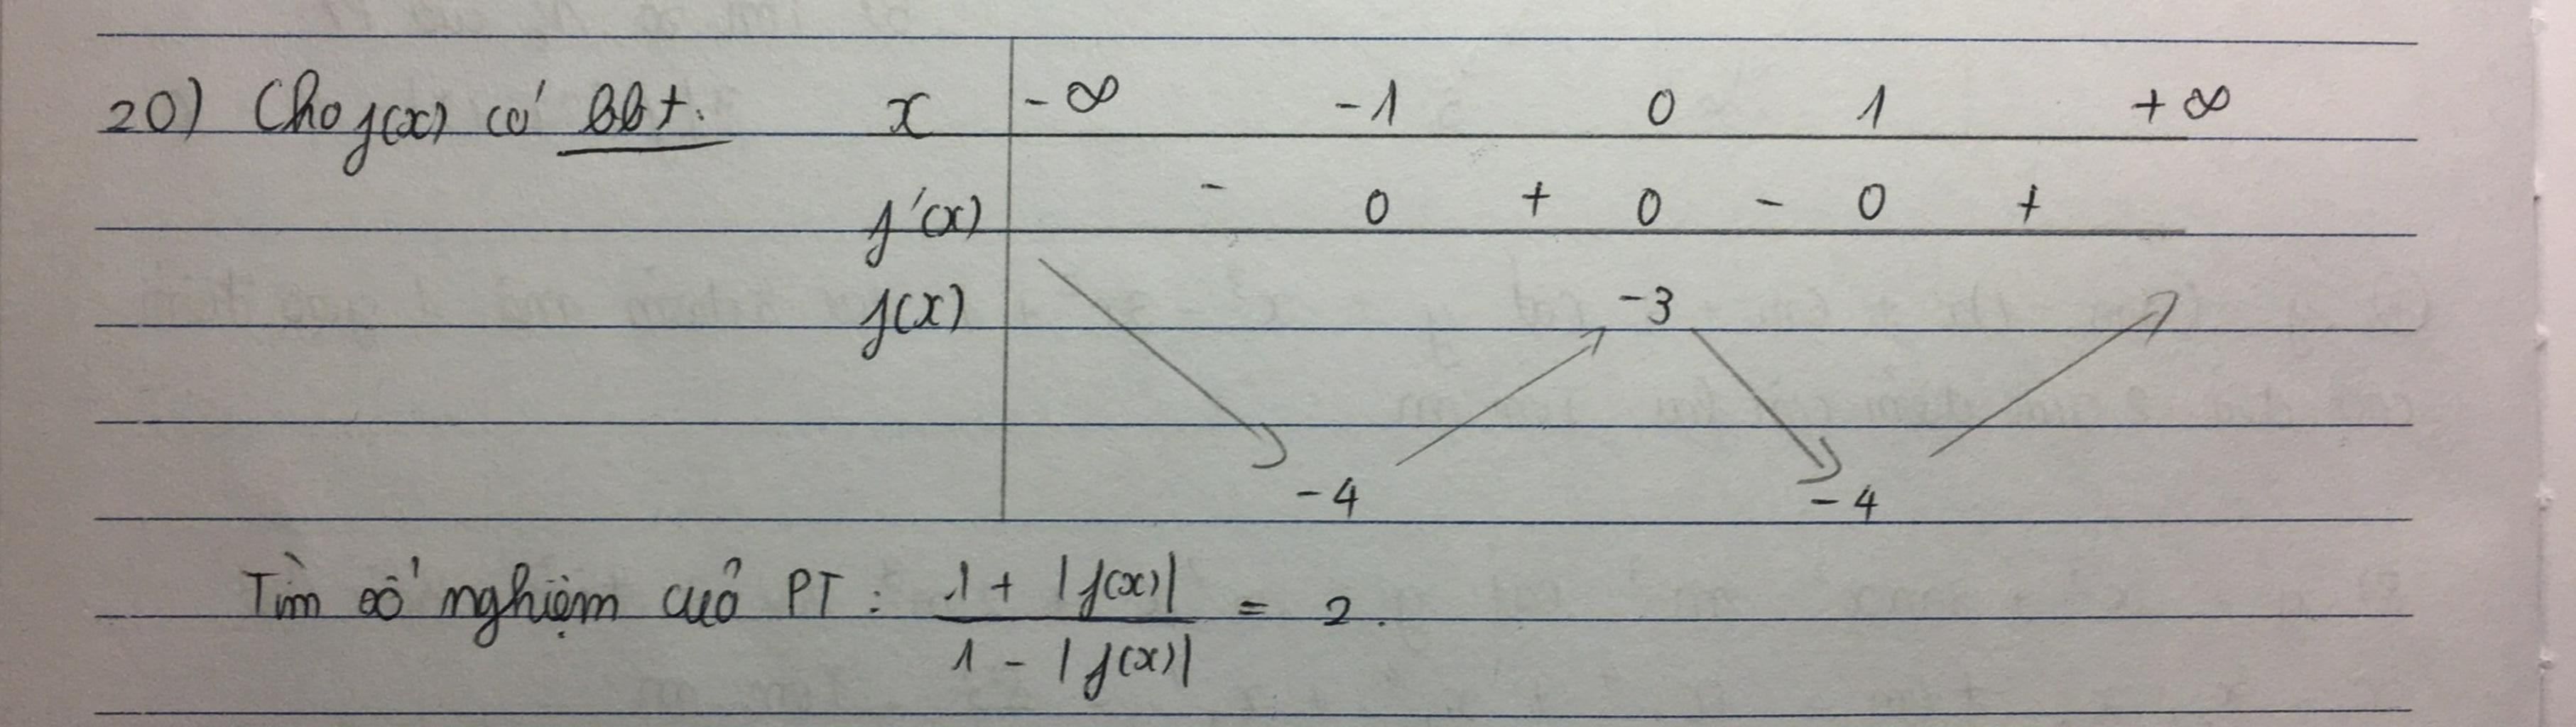 20) Cho f(x) có bbt. x -∞ -1 0 1 +∞
f'(x) - 0 + 0 - 0 +
f(x) -3
-4 -4
Tìm số nghiệm củả PT : \frac{1 + |f(x)|}{1 - |f(x)|} = 2.